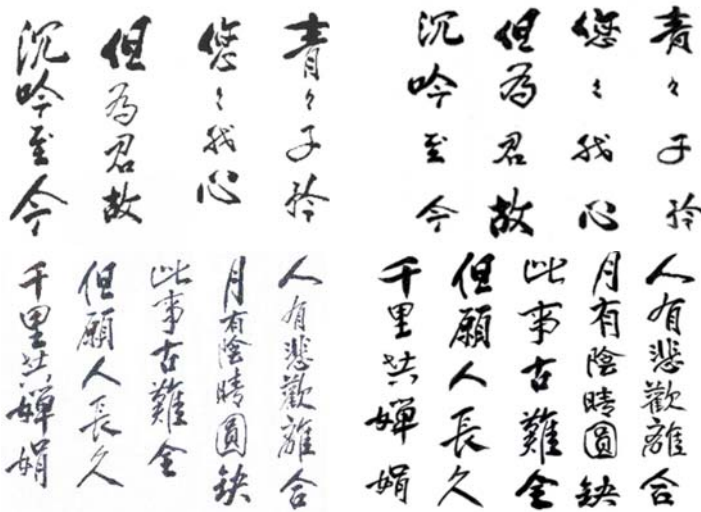 青々子衿
悠々我心
但為君故
沉吟至今
青々子衿
悠々我心
但為君故
沉吟至今
人有悲歡離合
月有陰晴圓缺
此事古難全
但願人長久
千里共嬋娟
人有悲歡離合
月有陰晴圓缺
此事古難全
但願人長久
千里共嬋娟